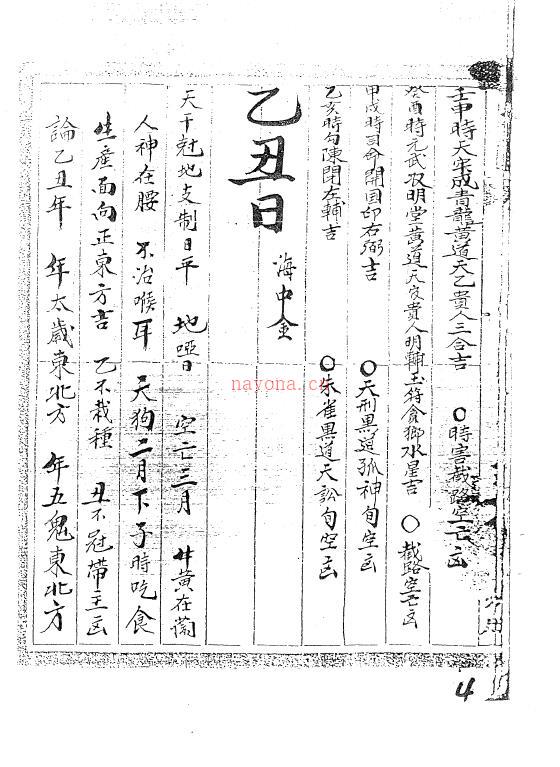 壬申時天牢成青龍黃道天乙貴人三合吉 〇時害截路空亡凶
癸酉時元武收明堂黃道天官貴人明輔玉符貪狼水星吉 〇截路空亡凶
甲戌時司命開国印右弼吉 〇天刑黑道孤神旬空凶
乙亥時勾陳閉左輔吉 〇朱雀黑道天訟旬空凶
乙丑日 海中金
天干尅地支制日平 地啞日 空亡三月 牛黃在
人神在腰 不治喉耳 天狗二月下子時吃食
生產面向正東方吉 乙不栽種 丑不冠帶主凶
論乙丑年 年太歲東北方 年五鬼東北方
nayona.cn
4